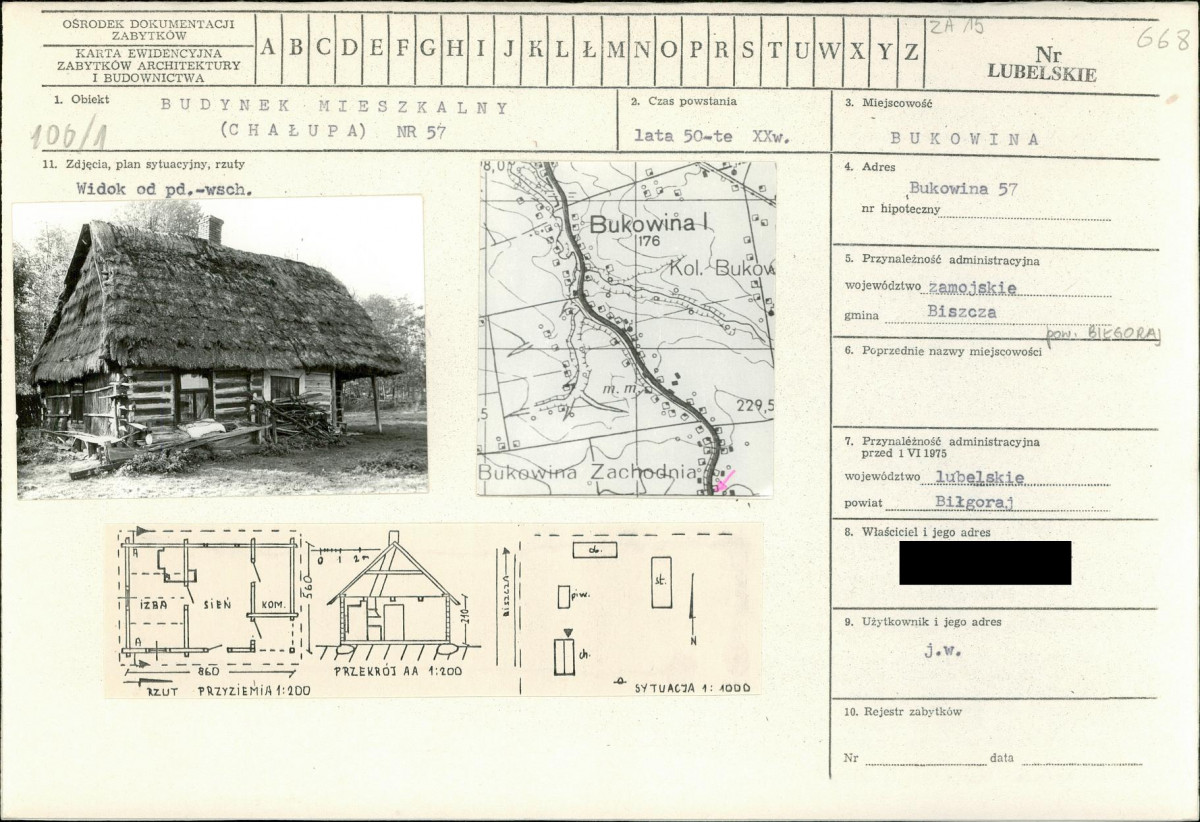 OŚRODEK DOKUMENTACJI
ZABYTKÓW
KARTA EWIDENCYJNA
ZABYTKÓW ARCHITEKTURY
I BUDOWNICTWA
A B C D E F G H I J K L Ł M N O P R S T U W X Y Z
ZA 15
668
Nr
LUBELSKIE
1. Obiekt
BUDYNEK MIESZKALNY
(CHAŁUPA) NR 57
106/1
2. Czas powstania
lata 50-te XXw.
3. Miejscowość
BUKOWINA
11. Zdjęcia, plan sytuacyjny, rzuty
Widok od pd.-wsch.
8,0
Bukowina I
176
Kol. Bukow
m. m.
229,5
5
Bukowina Zachodnia
4. Adres
Bukowina 57
nr hipoteczny
5. Przynależność administracyjna
województwo zamojskie
gmina Biszcza
pow. BIŁGORAJ
6. Poprzednie nazwy miejscowości
7. Przynależność administracyjna
przed 1 VI 1975
województwo lubelskie
powiat Biłgoraj
8. Właściciel i jego adres
9. Użytkownik i jego adres
j.w.
10. Rejestr zabytków
Nr
data
A
IZBA
SIEŃ
KOM.
A
560
860
RZUT PRZYZIEMIA 1:200
0 1 2 m
210
PRZEKRÓJ AA 1:200
BISZCZA
ob.
piw.
st.
ch.
N
SYTUACJA 1:1000